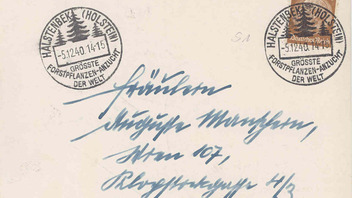 HALSTENBEK (HOLSTEIN)
-5.12.40. 14-15
GRÖSSTE
FORSTPFLANZEN-ANZUCHT
DER WELT
HALSTENBEK (HOLSTEIN)
-5.12.40. 14-15
GRÖSSTE
FORSTPFLANZEN-ANZUCHT
DER WELT
Fräulein
Auguste
Wien 107,
Klopstockgasse 4/2